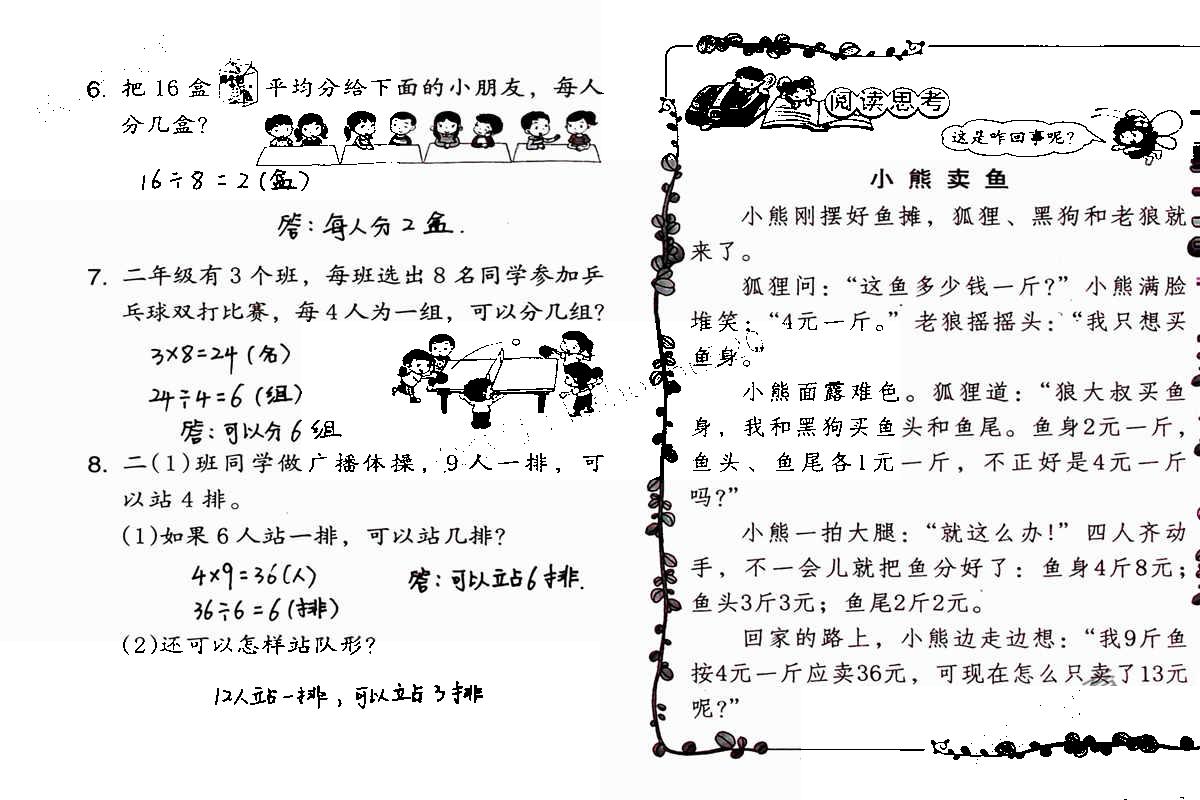 6. 把 16 盒 平均分给下面的小朋友，每人
分几盒？
16÷8=2(盒)
答：每人分2盒.
7. 二年级有3个班，每班选出8名同学参加乒
乓球双打比赛，每4人为一组，可以分几组？
3×8=24(名)
24÷4=6(组)
答：可以分6组
8. 二(1)班同学做广播体操，9人一排，可
以站4排。
(1)如果6人站一排，可以站几排？
4×9=36(人)
答：可以站6排.
36÷6=6(排)
(2)还可以怎样站队形？
12人站一排，可以站3排
阅读思考
这是咋回事呢？
小熊卖鱼
小熊刚摆好鱼摊，狐狸、黑狗和老狼就
来了。
狐狸问：“这鱼多少钱一斤？”小熊满脸
堆笑：“4元一斤。”老狼摇摇头：“我只想买
鱼身。”
小熊面露难色。狐狸道：“狼大叔买鱼
身，我和黑狗买鱼头和鱼尾。鱼身2元一斤，
鱼头、鱼尾各1元一斤，不正好是4元一斤
吗？”
小熊一拍大腿：“就这么办！”四人齐动
手，不一会儿就把鱼分好了：鱼身4斤8元；
鱼头3斤3元；鱼尾2斤2元。
回家的路上，小熊边走边想：“我9斤鱼
按4元一斤应卖36元，可现在怎么只卖了13元
呢？”